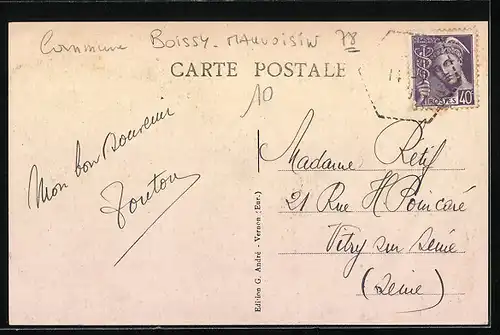 Commune Boissy-Mauvoisin 78
CARTE POSTALE
10
14
POSTES 40
Mon bon souvenir
Tonton
Madame Rétif
21 Rue H Poincaré
Vitry sur Seine
(Seine)
Edition G. André - Vernon (Eur.)